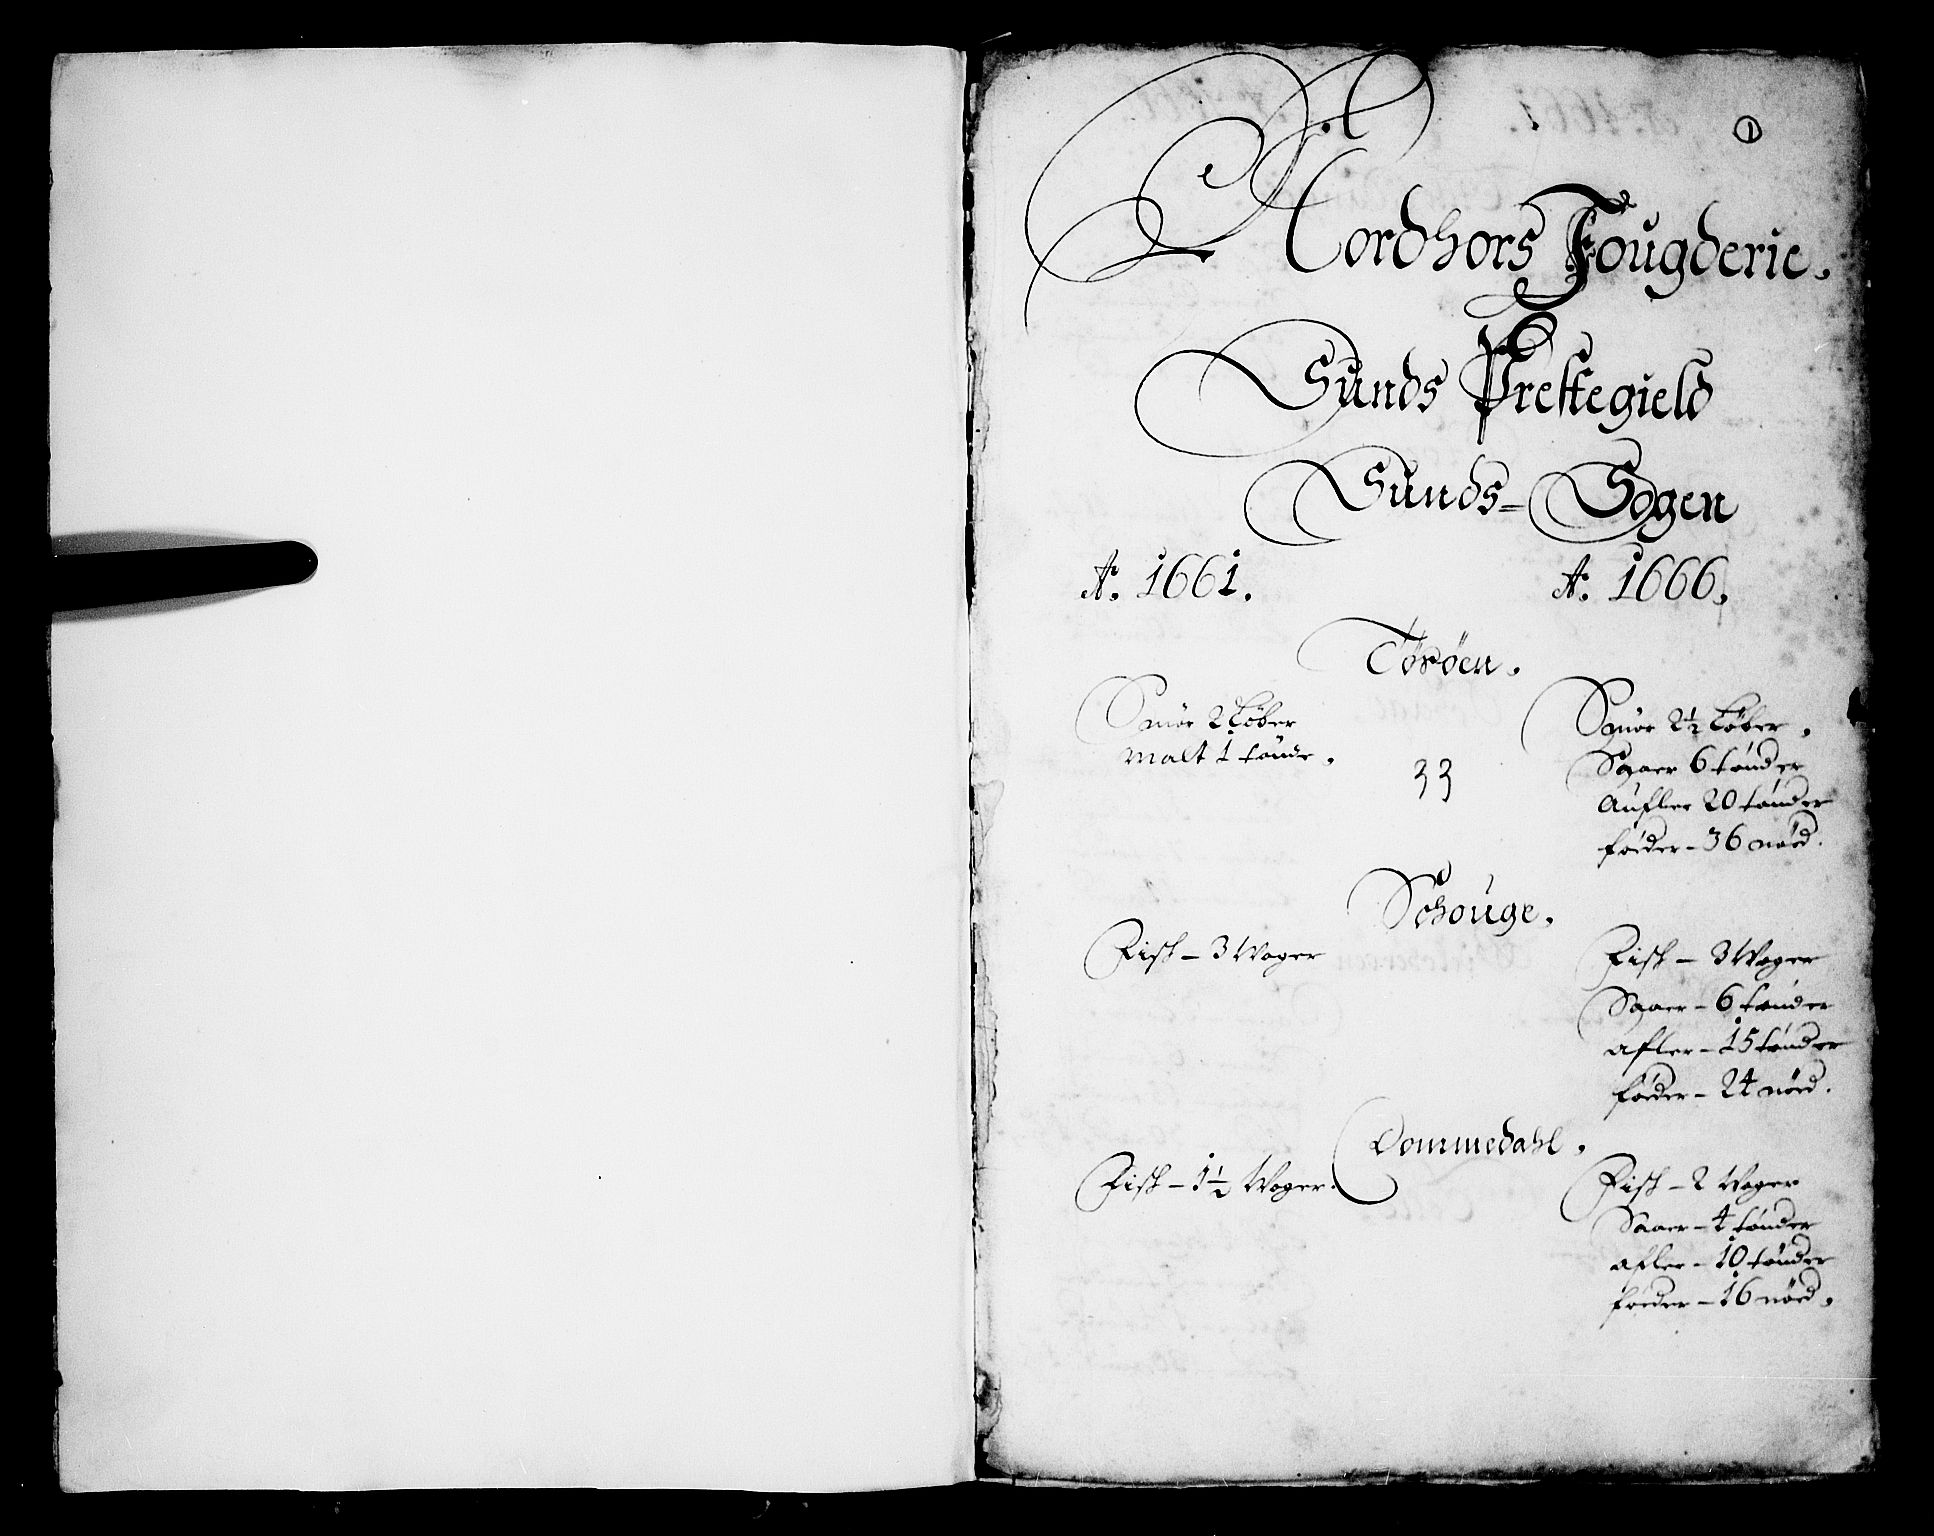 1
Nordhors Fougderie.
Sunds Prestegield
Sunds= Sogen
Aº. 1661. Aº. 1666.
Toröen.
Smör 2 Løber
Malt 1 tönde.
33
Smör 2½ Løber.
Saaer 6 tönder
Aufler 20 tönder
föeder – 36 nöed.
Schouge.
Fisk – 3 Woger
Fisk – 3 Woger
Saaer – 6 tönder
afler – 15 tönder
föeder – 24 nöed.
Dommedahl.
Fisk – 1½ Woger.
Fisk – 2 Woger
Saaer – 4 tönder
afler – 10 tönder
föeder – 16 nöed.